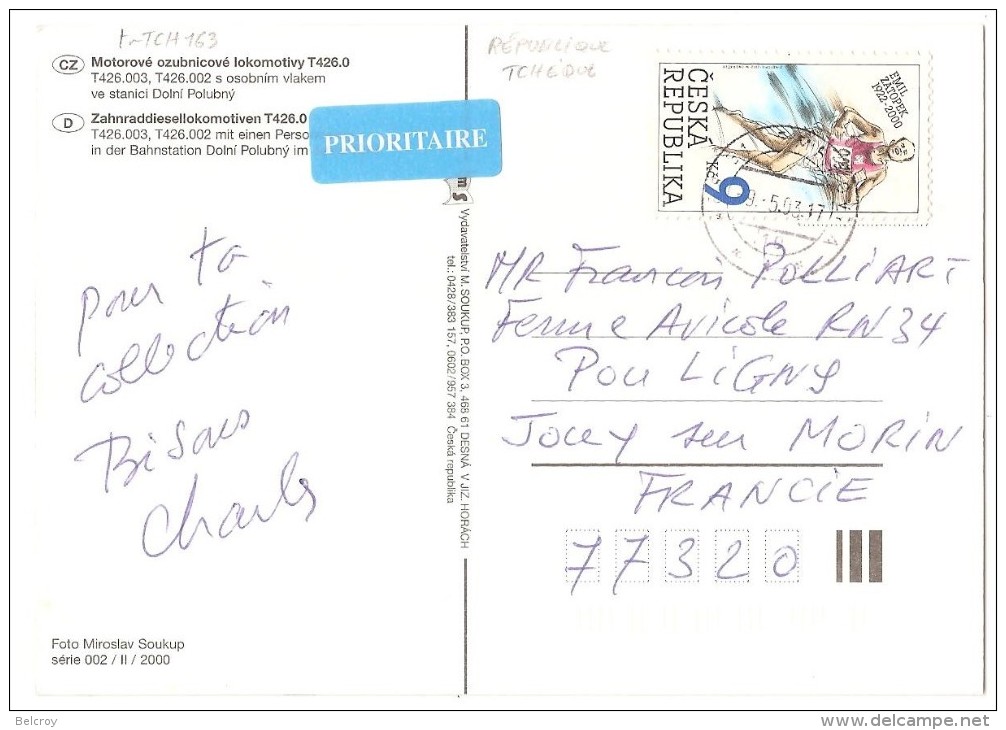 tr-TCH 163
CZ Motorové ozubnicové lokomotivy T426.0
T426.003, T426.002 s osobním vlakem
ve stanici Dolní Polubný
D Zahnraddiesellokomotiven T426.0
T426.003, T426.002 mit einen Perso
in der Bahnstation Dolní Polubný im
PRIORITAIRE
RÉPUBLIQUE
TCHÈQUE
ČESKÁ
REPUBLIKA
Kč 9
EMIL
ZÁTOPEK
1922-2000
9.-5.03.17
Vydavatelství M. SOUKUP, P.O. BOX 3, 468 61 DESNÁ V JIZ. HORÁCH
tel.: 0428/383 157, 0602/957 384 Česká republika
pour ta
collection
Bisous
Charles
MR Francois POLLIART
Ferme Avicole RN34
POU LIGNY
Jouy sur MORIN
FRANCIE
77320
Foto Miroslav Soukup
série 002 / II / 2000
Belcroy
www.delcampe.net